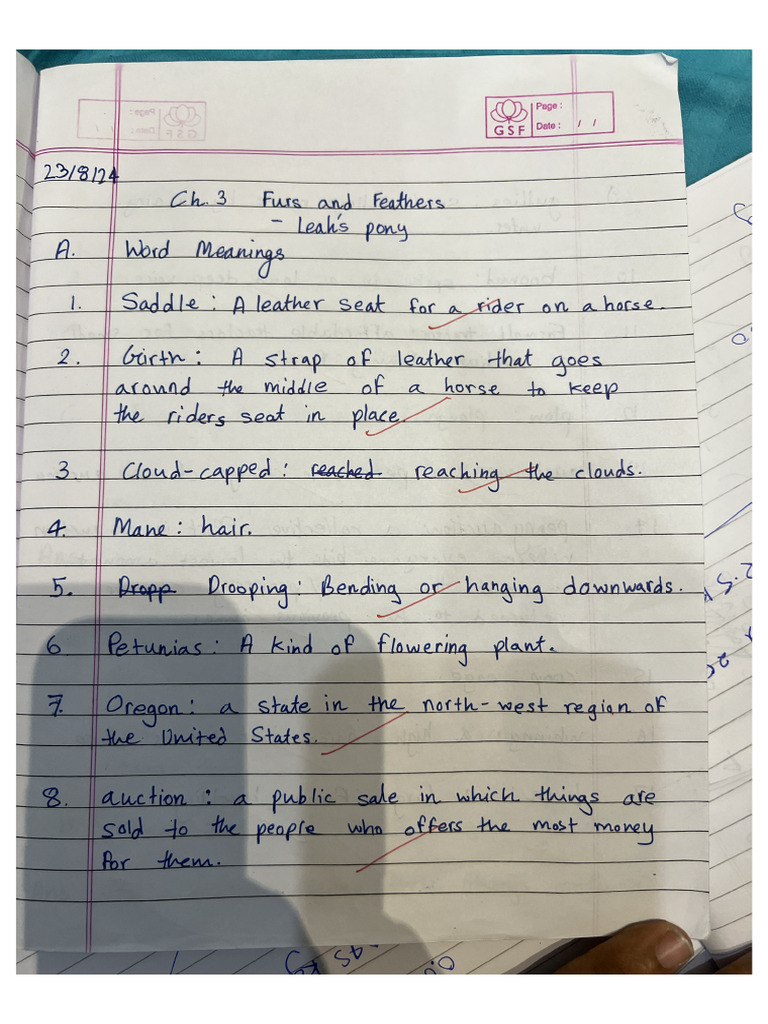 Page :
GSF
Date : / /
23/8/24
Ch. 3 Furs and Feathers
- Leah's pony
A. Word Meanings
1. Saddle : A leather seat for a rider on a horse.
2. Girth : A strap of leather that goes
around the middle of a horse to keep
the riders seat in place.
3 Cloud-capped : reached reaching the clouds.
4. Mane : hair.
5. Dropp Drooping : Bending or hanging downwards.
6 Petunias : A kind of flowering plant.
7. Oregon : a state in the north-west region of
the United States.
8. auction : a public sale in which things are
sold to the people who offers the most money
for them.